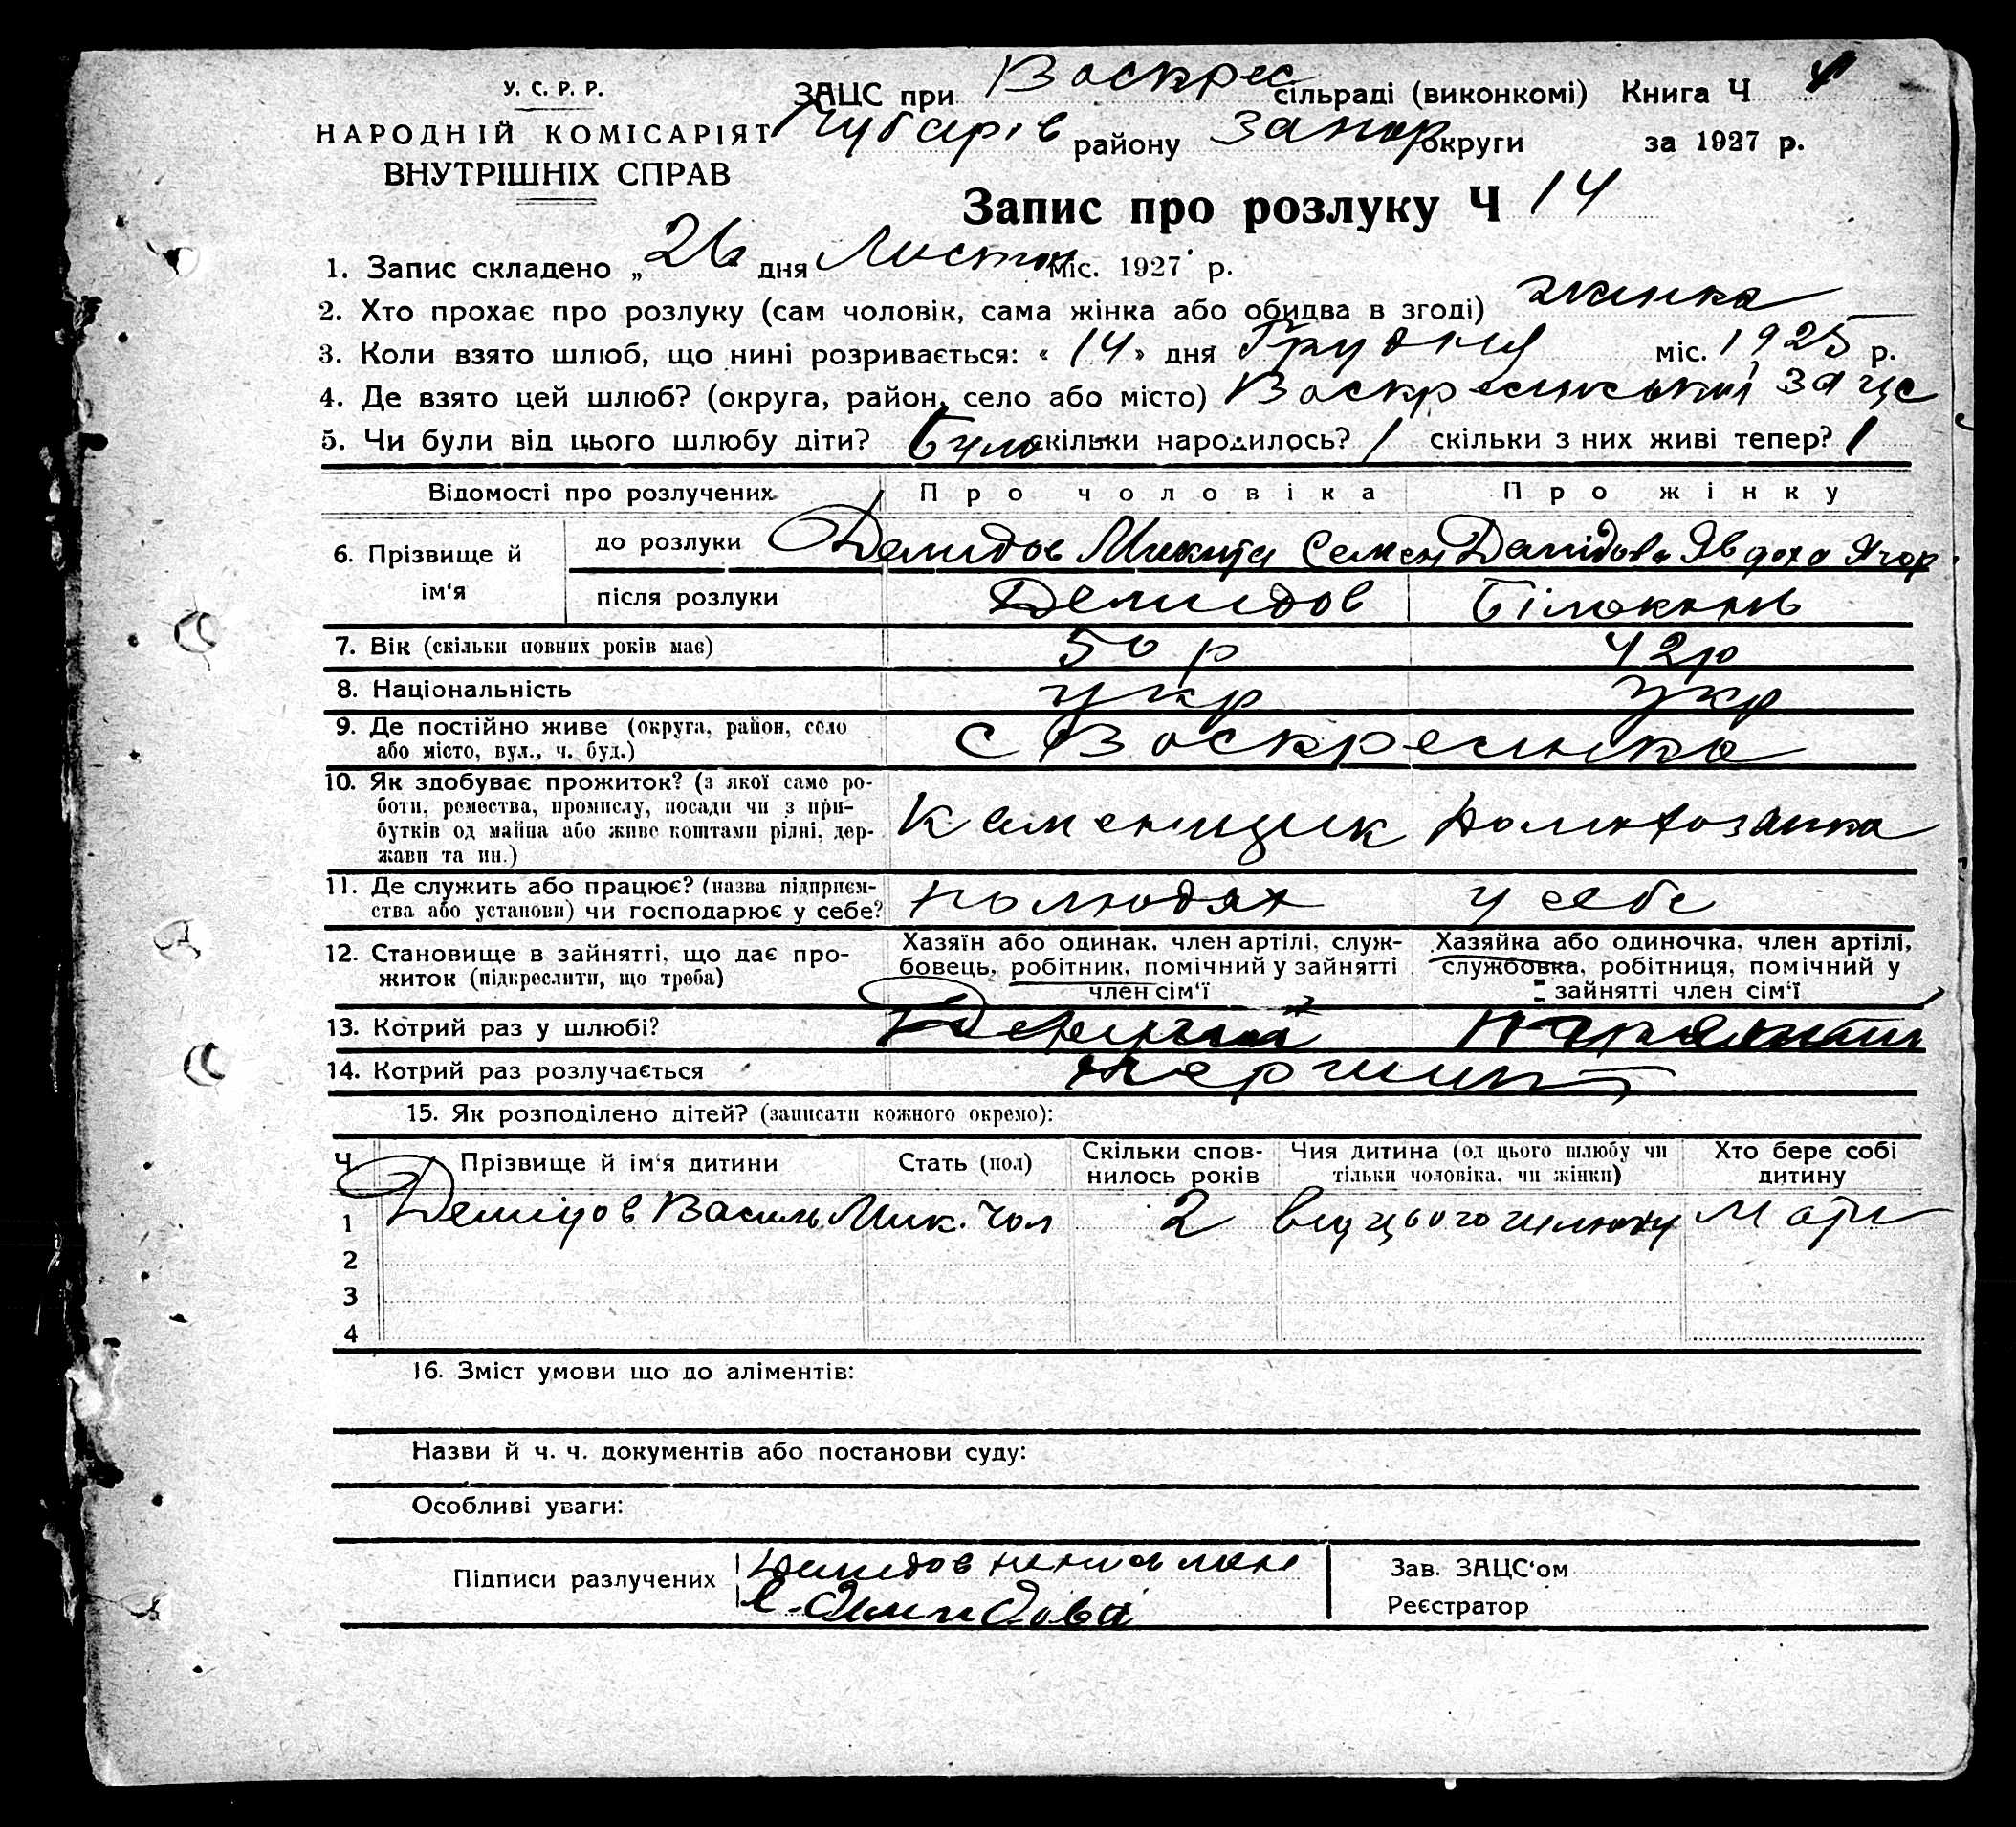 У. С. Р. Р.
НАРОДНІЙ КОМІСАРІЯТ
ВНУТРІШНІХ СПРАВ
ЗАЦС при Воскрес сільраді (виконкомі) Книга Ч
Чубарів району Запор округи за 1927 р.
Запис про розлуку Ч 14
1. Запис складено „26 дня Листоп міс. 1927 р.
2. Хто прохає про розлуку (сам чоловік, сама жінка або обидва в згоді) жинка
3. Коли взято шлюб, що нині розривається: « 14 » дня Грудня міс. 1925 р.
4. Де взято цей шлюб? (округа, район, село або місто) Воскресенський Зацс
5. Чи були від цього шлюбу діти? Було скільки народилось? 1 скільки з них живі тепер? 1
Відомості про розлучених Про чоловіка Про жінку
6. Прізвище й ім‘я
до розлуки Демидов Микита Семен Демідова Явдоха Ягор
після розлуки Демидов Білоконь
7. Вік (скільки повних років має) 50 р 42 р
8. Національність укр укр
9. Де постійно живе (округа, район, село або місто, вул., ч. буд.) с Воскресенка
10. Як здобуває прожиток? (з якої саме роботи, ремества, промислу, посади чи з прибутків од майна або живе коштами рідні, держави та ин.) Каменщик домохозяика
11. Де служить або працює? (назва підприємства або установи) чи господарює у себе? по людях у себе
12. Становище в зайнятті, що дає прожиток (підкреслити, що треба)
Хазяїн або одинак, член артілі, службовець, робітник, помічний у зайнятті член сім‘ї
Хазяйка або одиночка, член артілі, службовка, робітниця, помічний у зайнятті член сім‘ї
13. Котрий раз у шлюбі?
14. Котрий раз розлучається
15. Як розподілено дітей? (записати кожного окремо):
Ч. Прізвище й ім‘я дитини Стать (пол) Скільки сповнилось років Чия дитина (од цього шлюбу чи тільки чоловіка, чи жінки) Хто бере собі дитину
1 Демидов Василь Мик. чол 2 від цього шлюбу мати
2
3
4
16. Зміст умови що до аліментів:
Назви й ч. ч. документів або постанови суду:
Особливі уваги:
Підписи разлучених Демидов
Демидова
Зав. ЗАЦС‘ом
Реєстратор